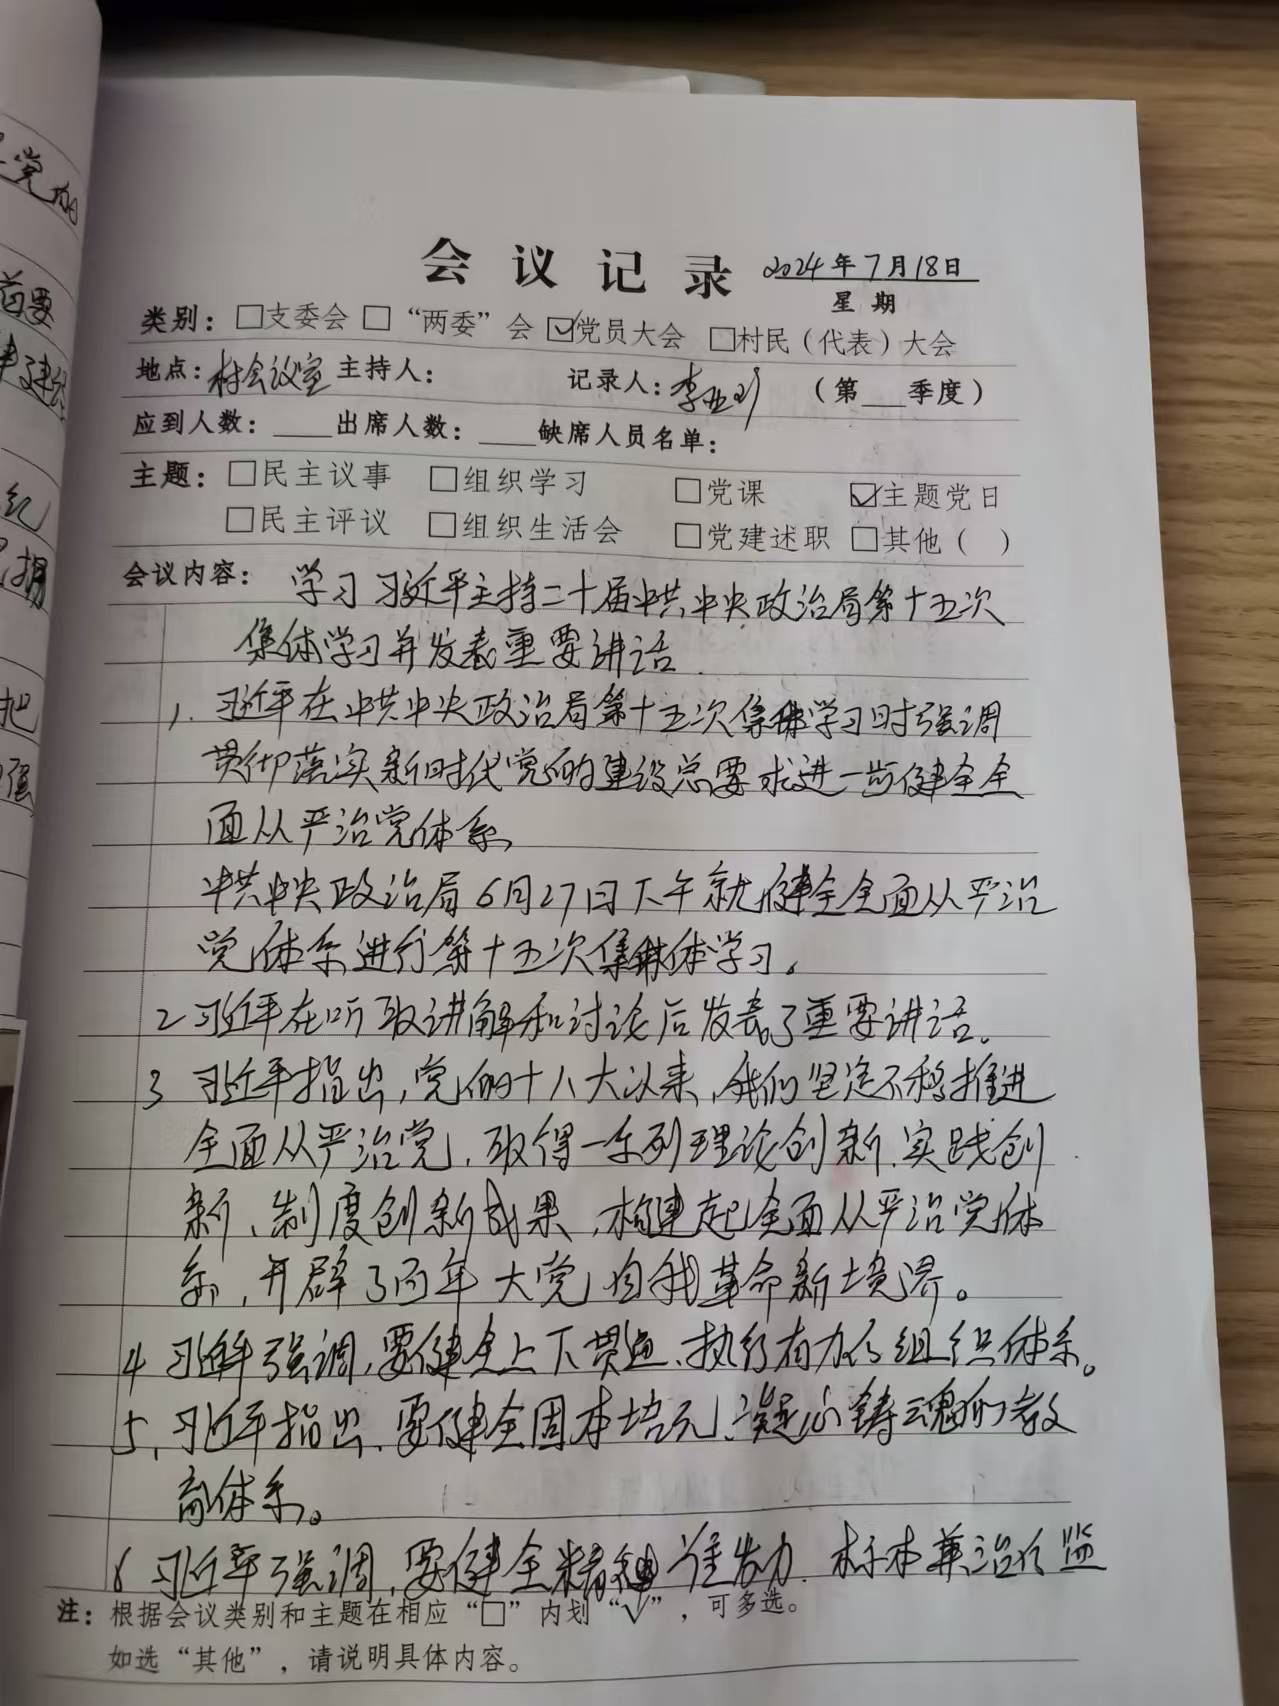 党的
首要
会议记录 2024年7月18日
星期
类别：□支委会 □“两委”会 ☑党员大会 □村民（代表）大会
地点：村会议室 主持人： 记录人：李亚 （第___季度）
应到人数：____出席人数：____缺席人员名单：
主题：□民主议事 □组织学习 □党课 ☑主题党日
□民主评议 □组织生活会 □党建述职 □其他（ ）
会议内容： 学习习近平主持二十届中共中央政治局第十五次
集体学习并发表重要讲话
1. 习近平在中共中央政治局第十五次集体学习时强调
贯彻落实新时代党的建设总要求进一步健全全
面从严治党体系
中共中央政治局6月27日下午就健全全面从严治
党体系进行第十五次集体学习。
2 习近平在听取讲解和讨论后发表了重要讲话。
3 习近平指出，党的十八大以来，我们坚定不移推进
全面从严治党，取得一系列理论创新、实践创
新、制度创新成果，构建起全面从严治党体
系，开辟了百年大党自我革命新境界。
4 习近平强调，要健全上下贯通、执行有力的组织体系。
5，习近平指出、要健全固本培元、凝心铸魂的教
育体系。
6 习近平强调，要健全精准发力、标本兼治的监
注：根据会议类别和主题在相应“□”内划“√”，可多选。
如选“其他”，请说明具体内容。